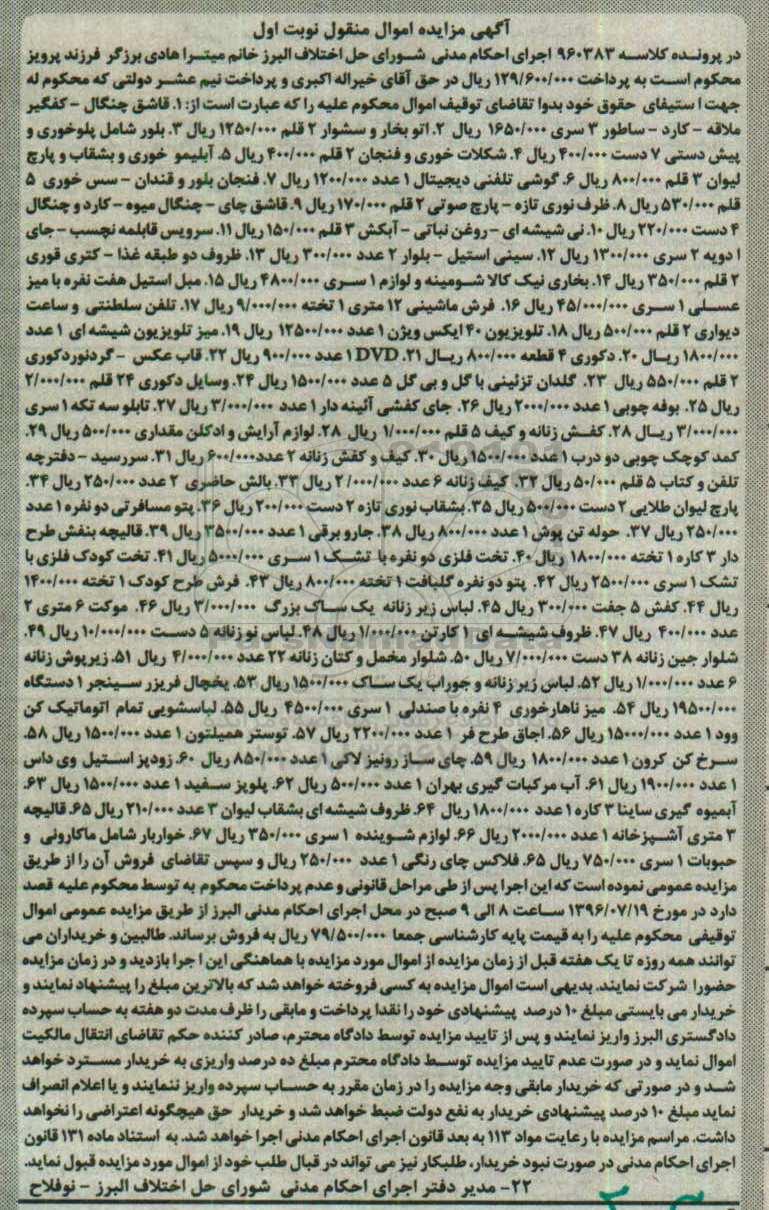 آگهی مزایده اموال منقول نوبت اول
در پرونده کلاسه ۹۶۰۳۸۳ اجرای احکام مدنی شورای حل اختلاف البرز خانم میترا هادی برزگر فرزند پرویز
محکوم است به پرداخت ۱۲۹/۶۰۰/۰۰۰ ریال در حق آقای خیراله اکبری و پرداخت نیم عشر دولتی که محکوم له
جهت ا ستیفای حقوق خود بدوا تقاضای توقیف اموال محکوم علیه را که عبارت است از: ۱. قاشق چنگال - کفگیر
ملاقه - کارد - ساطور ۳ سری ۱۶۵۰/۰۰۰ ریال ۲. اتو بخار و سشوار ۲ قلم ۱۲۵۰/۰۰۰ ریال ۳. بلور شامل پلوخوری و
پیش دستی ۷ دست ۴۰۰/۰۰۰ ریال ۴. شکلات خوری و فنجان ۲ قلم ۴۰۰/۰۰۰ ریال ۵. آبلیمو خوری و بشقاب و پارچ
لیوان ۳ قلم ۸۰۰/۰۰۰ ریال ۶. گوشی تلفنی دیجیتال ۱ عدد ۱۲۰۰/۰۰۰ ریال ۷. فنجان بلور و قندان - سس خوری ۵
قلم ۵۳۰/۰۰۰ ریال ۸. ظرف نوری تازه - پارچ صوتی ۲ قلم ۱۷۰/۰۰۰ ریال ۹. قاشق چای - چنگال میوه - کارد و چنگال
۴ دست ۲۲۰/۰۰۰ ریال ۱۰. نی شیشه ای - روغن نباتی - آبکش ۳ قلم ۱۵۰/۰۰۰ ریال ۱۱. سرویس قابلمه نچسب - جای
ا دویه ۲ سری ۱۳۰۰/۰۰۰ ریال ۱۲. سینی استیل - بلوار ۲ عدد ۳۰۰/۰۰۰ ریال ۱۳. ظروف دو طبقه غذا - کتری قوری
۲ قلم ۳۵۰/۰۰۰ ریال ۱۴. بخاری نیک کالا شومینه و لوازم ۱ سری ۴۸۰۰/۰۰۰ ریال ۱۵. مبل استیل هفت نفره با میز
عسلی ۱ سری ۴۵/۰۰۰/۰۰۰ ریال ۱۶. فرش ماشینی ۱۲ متری ۱ تخته ۹/۰۰۰/۰۰۰ ریال ۱۷. تلفن سلطنتی و ساعت
دیواری ۲ قلم ۵۰۰/۰۰۰ ریال ۱۸. تلویزیون ۴۰ ایکس ویژن ۱ عدد ۱۲۵۰۰/۰۰۰ ریال ۱۹. میز تلویزیون شیشه ای ۱ عدد
۱۸۰۰/۰۰۰ ریال ۲۰. دکوری ۴ قطعه ۸۰۰/۰۰۰ ریال ۲۱. DVD ۱ عدد ۹۰۰/۰۰۰ ریال ۲۲. قاب عکس - گردنوردکوری
۲ قلم ۵۵۰/۰۰۰ ریال ۲۳. گلدان تزئینی با گل و بی گل ۵ عدد ۱۵۰۰/۰۰۰ ریال ۲۴. وسایل دکوری ۲۴ قلم ۲/۰۰۰/۰۰۰
ریال ۲۵. بوفه چوبی ۱ عدد ۲۰۰۰/۰۰۰ ریال ۲۶. جای کفشی آئینه دار ۱ عدد ۳/۰۰۰/۰۰۰ ریال ۲۷. تابلو سه تکه ۱ سری
۳/۰۰۰/۰۰۰ ریال ۲۸. کفش زنانه و کیف ۵ قلم ۱/۰۰۰/۰۰۰ ریال ۲۸. لوازم آرایش و ادکلن مقداری ۵۰۰/۰۰۰ ریال ۲۹.
کمد کوچک چوبی دو درب ۱ عدد ۱۵۰۰/۰۰۰ ریال ۳۰. کیف و کفش زنانه ۲ عدد ۶۰۰/۰۰۰ ریال ۳۱. سررسید - دفترچه
تلفن و کتاب ۵ قلم ۵۰/۰۰۰ ریال ۳۲. کیف زنانه ۶ عدد ۲/۰۰۰/۰۰۰ ریال ۳۳. بالش حاضری ۲ عدد ۲۵۰/۰۰۰ ریال ۳۴.
پارچ لیوان طلایی ۲ دست ۵۰۰/۰۰۰ ریال ۳۵. بشقاب نوری تازه ۲ دست ۲۰۰/۰۰۰ ریال ۳۶. پتو مسافرتی دو نفره ۱ عدد
۲۵۰/۰۰۰ ریال ۳۷. حوله تن پوش ۱ عدد ۸۰۰/۰۰۰ ریال ۳۸. جارو برقی ۱ عدد ۳۵۰۰/۰۰۰ ریال ۳۹. قالیچه بنفش طرح
دار ۳ کاره ۱ تخته ۱۸۰۰/۰۰۰ ریال ۴۰. تخت فلزی دو نفره با تشک ۱ سری ۵۰۰۰/۰۰۰ ریال ۴۱. تخت کودک فلزی با
تشک ۱ سری ۲۵۰۰/۰۰۰ ریال ۴۲. پتو دو نفره گلبافت ۱ تخته ۸۰۰/۰۰۰ ریال ۴۳. فرش طرح کودک ۱ تخته ۱۴۰۰/۰۰۰
ریال ۴۴. کفش ۵ جفت ۳۰۰/۰۰۰ ریال ۴۵. لباس زیر زنانه یک ساک بزرگ ۳/۰۰۰/۰۰۰ ریال ۴۶. موکت ۶ متری ۲
عدد ۴۰۰/۰۰۰ ریال ۴۷. ظروف شیشه ای ۱ کارتن ۱/۰۰۰/۰۰۰ ریال ۴۸. لباس نو زنانه ۵ دست ۱۰/۰۰۰/۰۰۰ ریال ۴۹.
شلوار جین زنانه ۳۸ دست ۷/۰۰۰/۰۰۰ ریال ۵۰. شلوار مخمل و کتان زنانه ۲۲ عدد ۴/۰۰۰/۰۰۰ ریال ۵۱. زیرپوش زنانه
۶ عدد ۱/۰۰۰/۰۰۰ ریال ۵۲. لباس زیر زنانه و جوراب یک ساک ۱۵۰۰/۰۰۰ ریال ۵۳. یخچال فریزر سینجر ۱ دستگاه
۱۹۵۰۰/۰۰۰ ریال ۵۴. میز ناهارخوری ۴ نفره با صندلی ۱ سری ۴۵۰۰/۰۰۰ ریال ۵۵. لباسشویی تمام اتوماتیک کن
وود ۱ عدد ۱۵۰۰۰/۰۰۰ ریال ۵۶. اجاق طرح فر ۱ عدد ۲۲۰۰/۰۰۰ ریال ۵۷. توستر همیلتون ۱ عدد ۱۵۰۰/۰۰۰ ریال ۵۸.
سرخ کن کرون ۱ عدد ۱۸۰۰/۰۰۰ ریال ۵۹. چای ساز رونیز لاکی ۱ عدد ۸۵۰/۰۰۰ ریال ۶۰. زودپز استیل وی داس
۱ عدد ۱۹۰۰/۰۰۰ ریال ۶۱. آب مرکبات گیری بهران ۱ عدد ۵۰۰/۰۰۰ ریال ۶۲. پلوپز سفید ۱ عدد ۱۵۰۰/۰۰۰ ریال ۶۳.
آبمیوه گیری ساینا ۳ کاره ۱ عدد ۱۸۰۰/۰۰۰ ریال ۶۴. ظروف شیشه ای بشقاب لیوان ۳ عدد ۲۱۰/۰۰۰ ریال ۶۵. قالیچه
۳ متری آشپزخانه ۱ عدد ۲۰۰۰/۰۰۰ ریال ۶۶. لوازم شوینده ۱ سری ۳۵۰/۰۰۰ ریال ۶۷. خواربار شامل ماکارونی و
حبوبات ۱ سری ۷۵۰/۰۰۰ ریال ۶۵. فلاکس چای رنگی ۱ عدد ۲۵۰/۰۰۰ ریال و سپس تقاضای فروش آن را از طریق
مزایده عمومی نموده است که این اجرا پس از طی مراحل قانونی و عدم پرداخت محکوم به توسط محکوم علیه قصد
دارد در مورخ ۱۳۹۶/۰۷/۱۹ ساعت ۸ الی ۹ صبح در محل اجرای احکام مدنی البرز از طریق مزایده عمومی اموال
توقیفی محکوم علیه را به قیمت پایه کارشناسی جمعا ۷۹/۵۰۰/۰۰۰ ریال به فروش برساند. طالبین و خریداران می
توانند همه روزه تا یک هفته قبل از زمان مزایده از اموال مورد مزایده با هماهنگی این ا جرا بازدید و در زمان مزایده
حضورا شرکت نمایند. بدیهی است اموال مزایده به کسی فروخته خواهد شد که بالاترین مبلغ را پیشنهاد نمایند و
خریدار می بایستی مبلغ ۱۰ درصد پیشنهادی خود را نقدا پرداخت و مابقی را ظرف مدت دو هفته به حساب سپرده
دادگستری البرز واریز نمایند و پس از تایید مزایده توسط دادگاه محترم، صادر کننده حکم تقاضای انتقال مالکیت
اموال نماید و در صورت عدم تایید مزایده توسط دادگاه محترم مبلغ ده درصد واریزی به خریدار مسترد خواهد
شد و در صورتی که خریدار مابقی وجه مزایده را در زمان مقرر به حساب سپرده واریز ننمایند و یا اعلام انصراف
نماید مبلغ ۱۰ درصد پیشنهادی خریدار به نفع دولت ضبط خواهد شد و خریدار حق هیچگونه اعتراضی را نخواهد
داشت. مراسم مزایده با رعایت مواد ۱۱۳ به بعد قانون اجرای احکام مدنی اجرا خواهد شد. به استناد ماده ۱۳۱ قانون
اجرای احکام مدنی در صورت نبود خریدار، طلبکار نیز می تواند در قبال طلب خود از اموال مورد مزایده قبول نماید.
۲۲- مدیر دفتر اجرای احکام مدنی شورای حل اختلاف البرز - نوفلاح